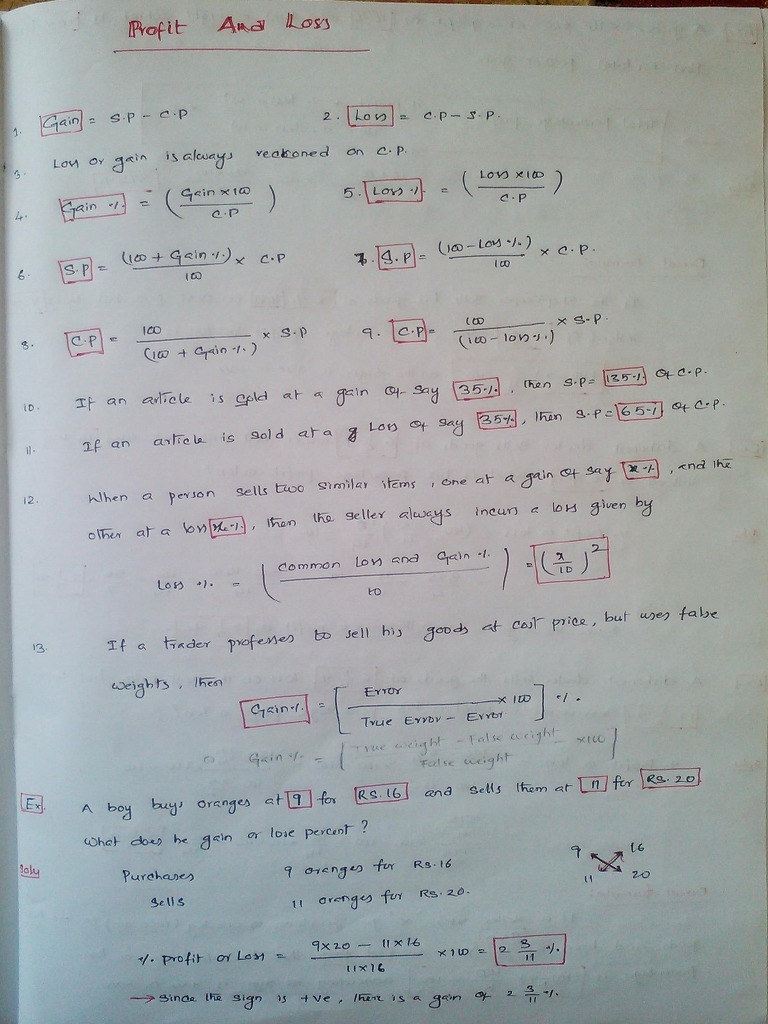 Profit And Loss
1. Gain = S.P - C.P
2. Loss = C.P - S.P.
3. Loss or gain is always reckoned on C.P.
4. Gain % = ( Gain × 100 / C.P )
5. Loss % = ( Loss × 100 / C.P )
6. S.P = (100 + Gain %) / 100 × C.P
7. S.P = (100 - Loss %) / 100 × C.P.
8. C.P = 100 / (100 + Gain %) × S.P
9. C.P = 100 / (100 - loss %) × S.P.
10. If an article is sold at a gain of say 35%, then S.P = 135% of C.P.
11. If an article is sold at a Loss of say 35%, then S.P = 65% of C.P.
12. When a person sells two similar items, one at a gain of say x%, and the
other at a loss x%, then the seller always incurs a loss given by
Loss % = ( common Loss and Gain % / 10 ) = ( x / 10 )²
13. If a trader professes to sell his goods at cost price, but uses false
weights, then
Gain % = [ Error / True Error - Error × 100 ] %.
Gain % = [ True weight - False weight / False weight × 100 ]
Ex. A boy buys oranges at 9 for RS.16 and sells them at 11 for RS.20.
What does he gain or lose percent?
Soln
9 16
11 20
Purchases 9 oranges for RS.16
Sells 11 oranges for RS.20.
% profit or Loss = 9×20 - 11×16 / 11×16 × 100 = 2 3/11 %
→ Since the sign is +ve, there is a gain of 2 3/11 %.